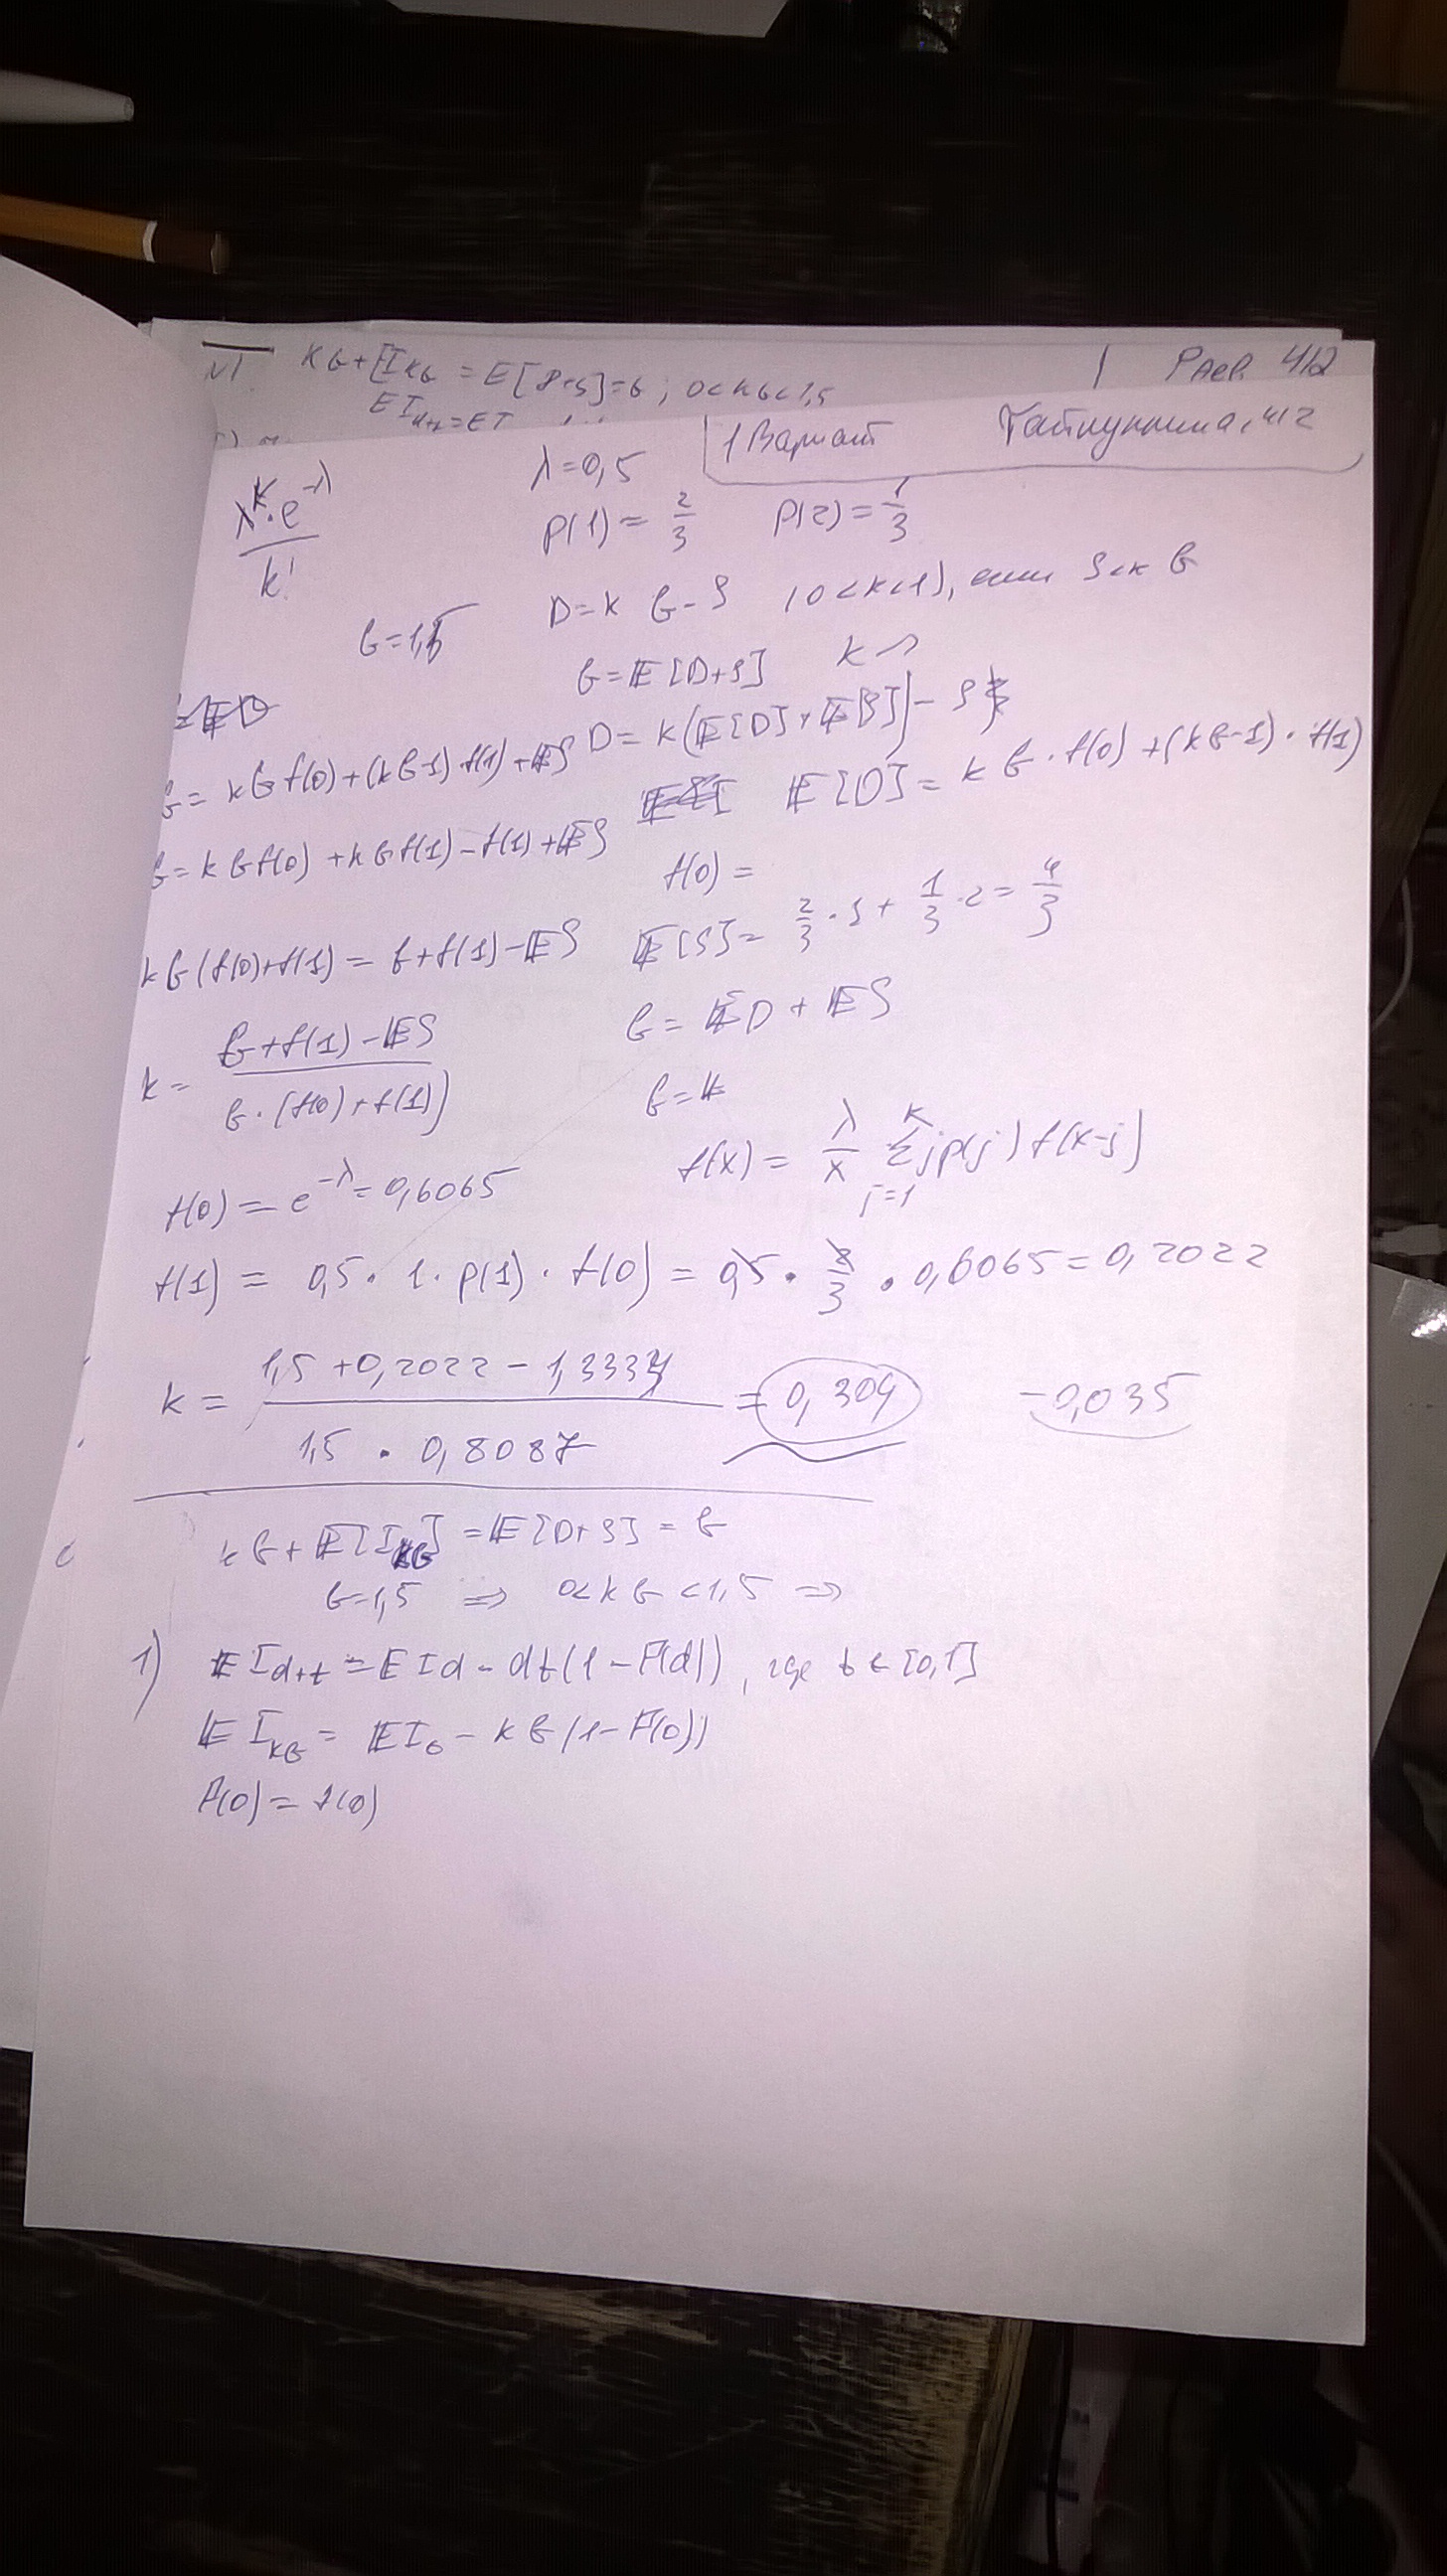 N1. KG+[I KG = E[D+S]=G ; 0<KG<1,5
1 Раев. 412
E I d+t = E I
1 Вариант 412
λ^k · e^-λ / k!
λ=0,5
p(1) = 2/3 p(2) = 1/3
G=1,5
D=k G-S (0<k<1), если S<k G
G=E[D+S] k
D= k(E[D]+E[S])-S
G= kG f(0)+(kG-1) f(1)+ES
E[D]= k G · f(0) +(kG-1) · f(1)
G= k G f(0) +kG f(1) - f(1) + ES
f(0) =
E[S]= 2/3 · 1 + 1/3 · 2 = 4/3
kG (f(0)+f(1)) = G+f(1)-ES
G= ED + ES
k= G+f(1)-ES / G·(f(0)+f(1))
G=k
f(x) = λ/x Σ j=1 k jp(j) f(x-j)
f(0) = e^-λ = 0,6065
f(1) = 0,5 · 1 · p(1) · f(0) = 0,5 · 2/3 · 0,6065 = 0,2022
k = 1,5 +0,2022 - 1,3333 / 1,5 · 0,8087 = 0,304 -0,035
kG+E[I kG] =E[D+S] = G
G=1,5 ⇒ 0<kG<1,5 ⇒
1) E I d+t = E I d - dt(1-F(d)), где t ∈ [0,1]
E I kG = E I 0 - kG(1-F(0))
F(0)= f(0)